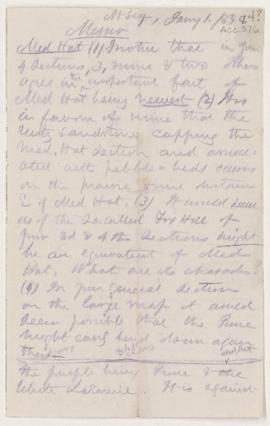 Jany 1. 83
84?
ACC 576
Memo
Med. Hat (1) I notice that in
4 sections, 3, mine & two others
agree in the important fact of
Med Hat being newest (2) It is
in favour of mine that the
sandstone capping the
Med. Hat section and associ-
ated with pebble-beds occurs
on the prairie some distance
E of Med Hat. (3) It would seem
as if the so called Fox Hill of
your 3d & 4th sections might
be an equivalent of Med
Hat. What are its characters?
(4) In your general section
on the large map it would
seem possible that the Pierre
might come down again
the purple being Pierre & the
white Laramie. It is against